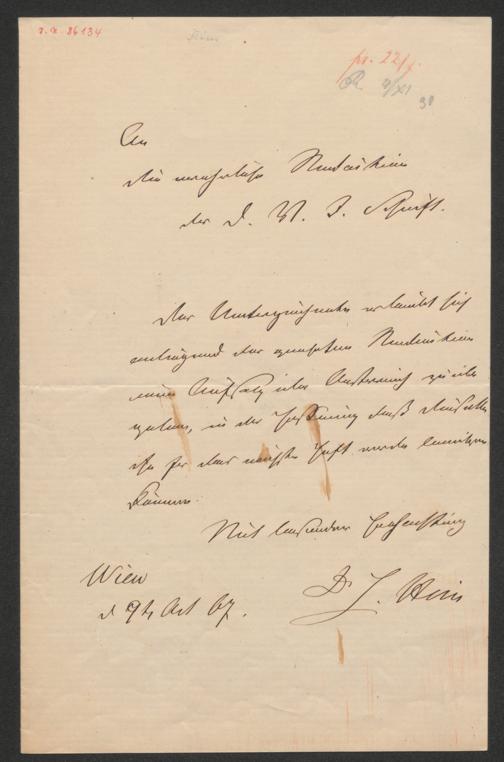 An
die verehrliche Redaktion
der D. V. J. Schrift.
Der Unterzeichnete erlaubt sich
anliegend der geehrten Redaktion
einen Aufsatz über Oesterreich zu über
geben, in der Hoffnung daß dieselbe
ihn für das nächste Heft werde benützen
können.
Mit besonderer Hochachtung
Wien
d 9t. Oct 67.
Dr J.